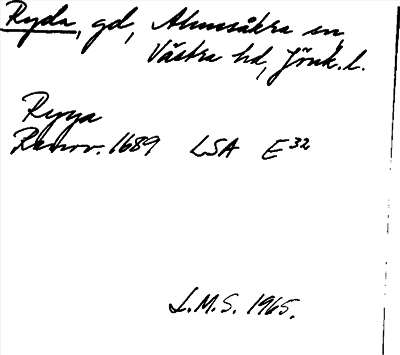 Ryda, gd, Almesåkra sn,
Västra hd, Jönk. l.
Ryya
Renov. 1689 LSA E³²
L.M.S. 1965.